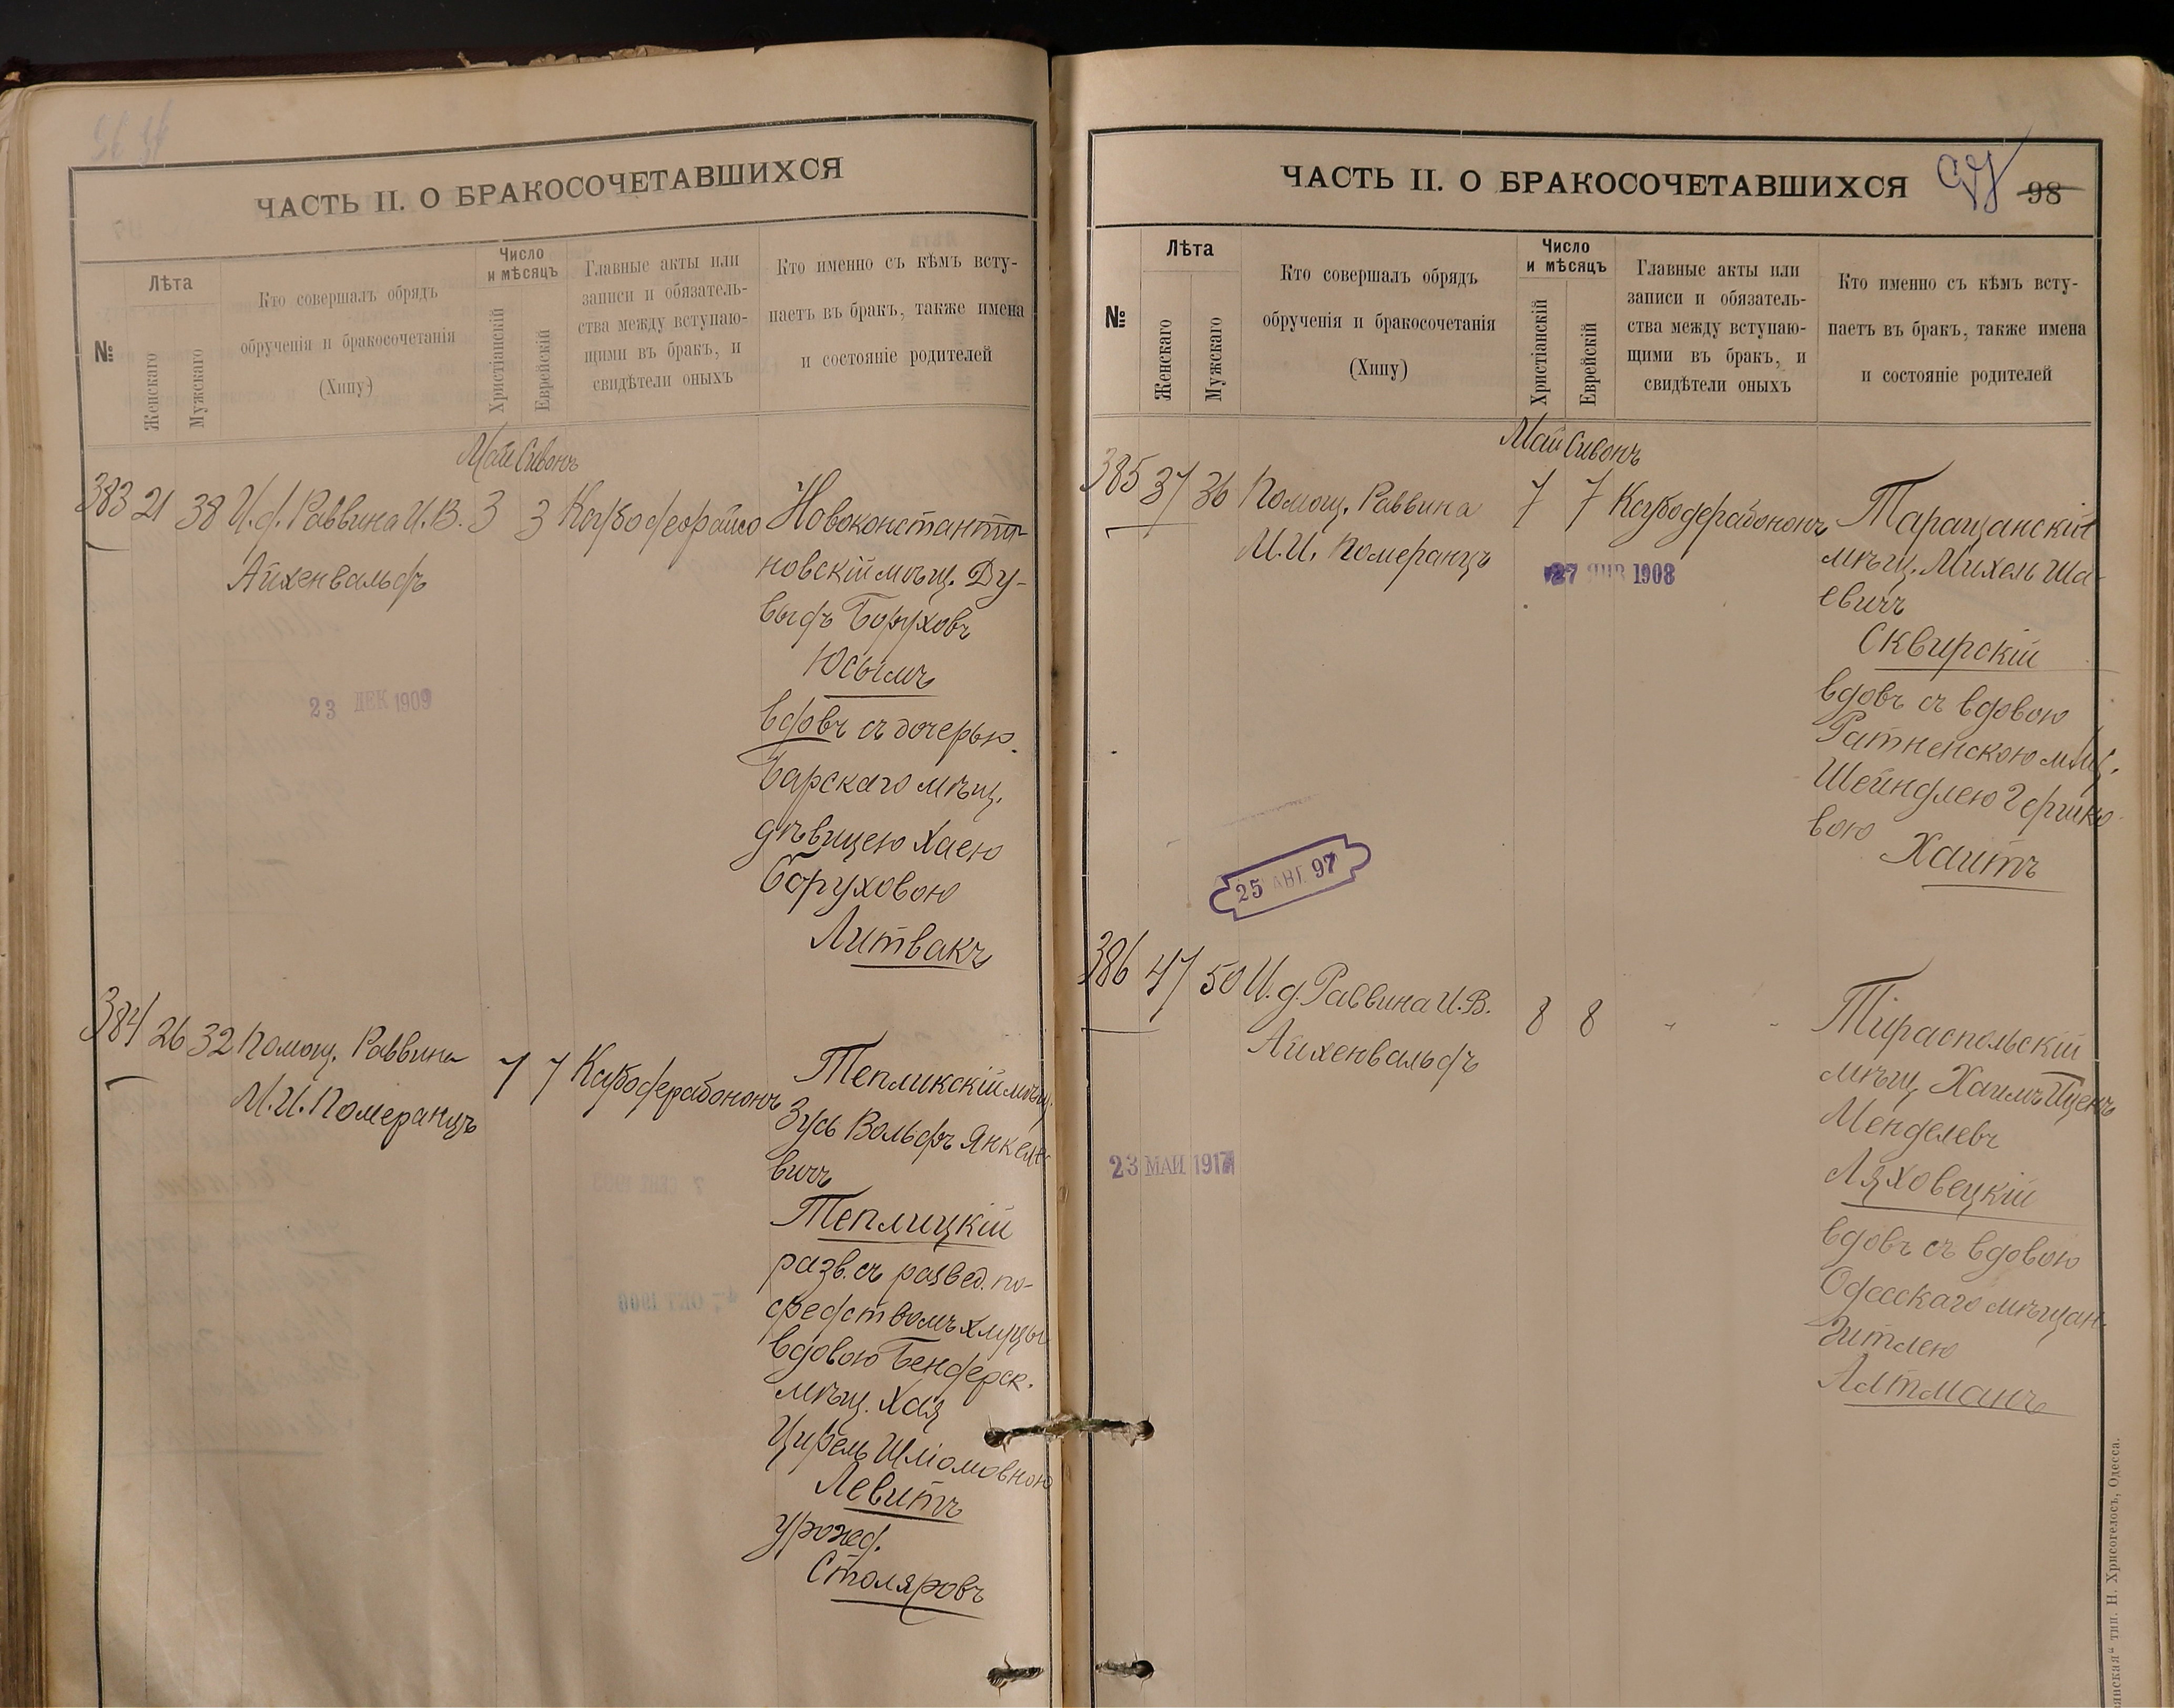 ЧАСТЬ II. О БРАКОСОЧЕТАВШИХСЯ
№
Лѣта
Женскаго
Мужскаго
Кто совершалъ обрядъ
обрученія и бракосочетанія
(Хипу)
Число
и мѣсяцъ
Христіанскій
Еврейскій
Главные акты или
записи и обязатель-
ства между вступаю-
щими въ бракъ, и
свидѣтели оныхъ
Кто именно съ кѣмъ всту-
паетъ въ бракъ, также имена
и состояніе родителей
Май Сивонъ
383 21 38 И.д. Раввина И.В. 3 3
Айхенвальдъ
23 ДЕК 1909
Новоконстанти-
новскій мѣщ. Ду-
выдъ Боруховъ
Юсымъ
вдовъ съ дочерью
Барскаго мѣщ.
дѣвицею Хаею
Боруховою
Литвакъ
384 26 32 Помощ. Раввина 7 7
М.И. Померанцъ
Тепликскій мѣщ.
Зусь Вольфъ Янкеле-
вичъ
Теплицкій
разв. съ развед. по-
средствомъ хлуцы
вдовою Бендерск.
мѣщ. Хая
Цирель Шліомовною
Левитъ
урожед.
Столяровъ
ЧАСТЬ II. О БРАКОСОЧЕТАВШИХСЯ
98
№
Лѣта
Женскаго
Мужскаго
Кто совершалъ обрядъ
обрученія и бракосочетанія
(Хипу)
Число
и мѣсяцъ
Христіанскій
Еврейскій
Главные акты или
записи и обязатель-
ства между вступаю-
щими въ бракъ, и
свидѣтели оныхъ
Кто именно съ кѣмъ всту-
паетъ въ бракъ, также имена
и состояніе родителей
Май Сивонъ
385 37 36 Помощ. Раввина 7 7
М.И. Померанцъ
27 ЯНВ 1908
Таращанскій
мѣщ. Михель Ша-
евичъ
Сквирскій
вдовъ съ вдовою
Ратненскою мѣщ.
Шейндлею Гершко-
вою
Хаитъ
25 АВГ. 97
386 47 50 И.д. Раввина И.В. 8 8 " "
Айхенвальдъ
23 МАЙ 1917
Тираспольскій
мѣщ. Хаимъ Иценъ
Менделевъ
Ляховецкій
вдовъ съ вдовою
Одесскаго мѣщан.
Гитлею
Алтманъ
тип. Н. Хрисогелосъ, Одесса.